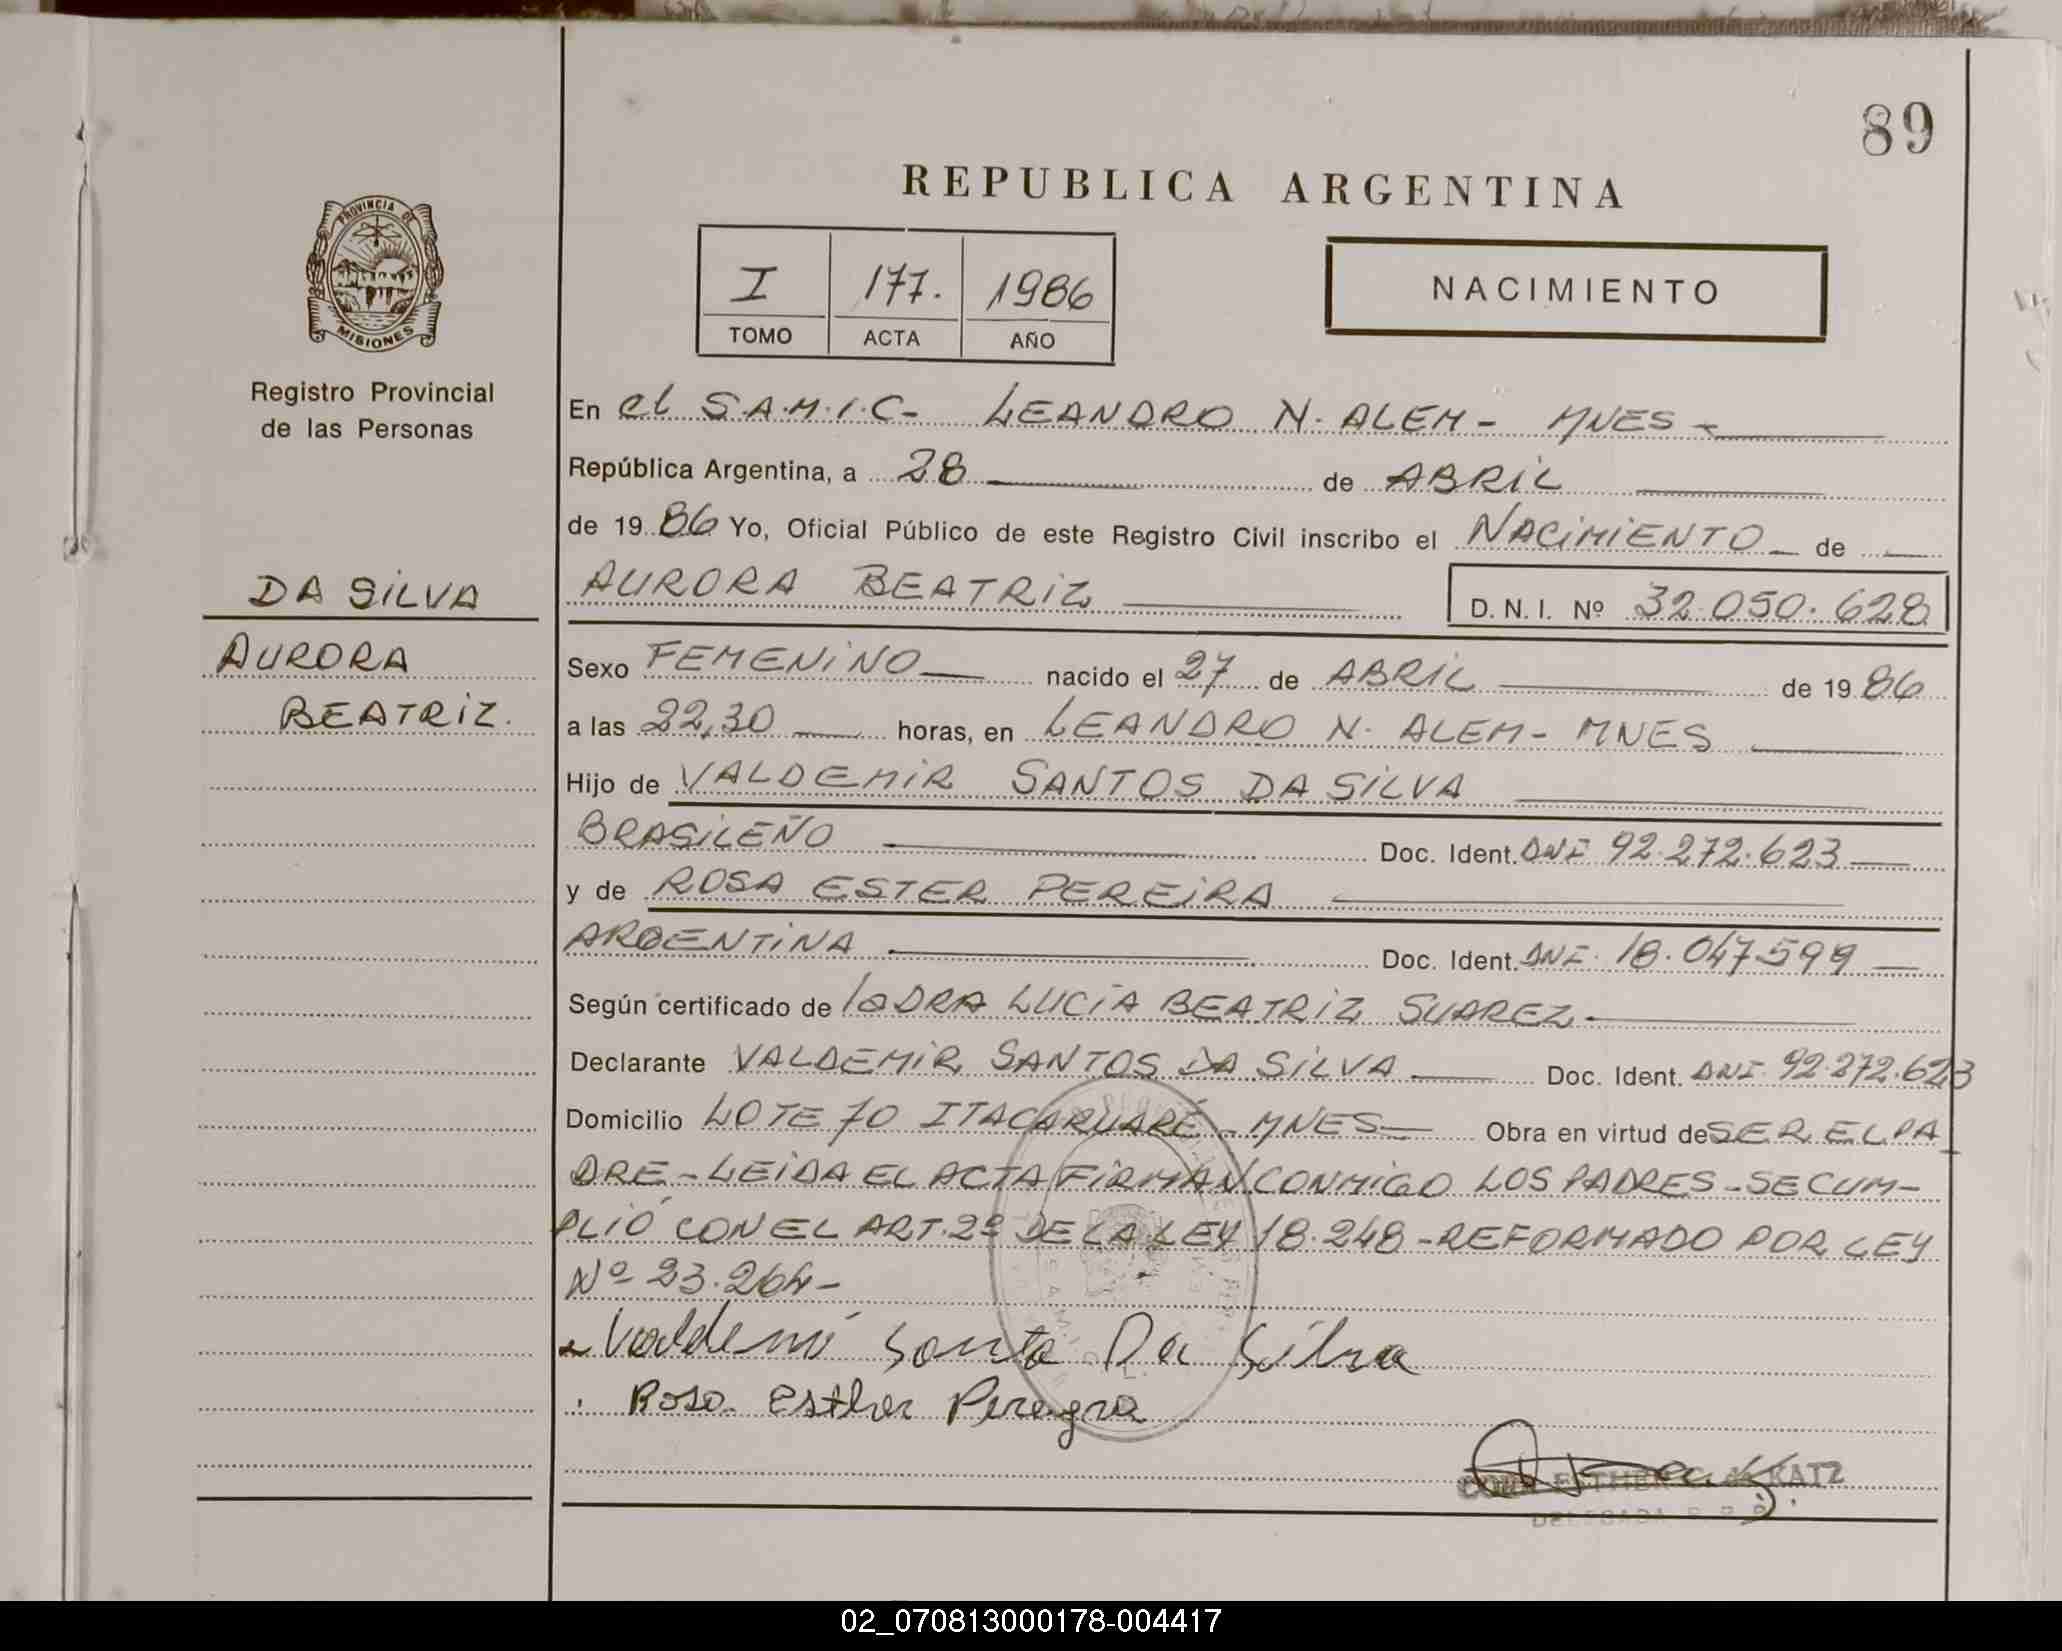 89
REPUBLICA ARGENTINA
PROVINCIA DE
MISIONES
I 177. 1986
TOMO ACTA AÑO
NACIMIENTO
Registro Provincial
de las Personas
DA SILVA
AURORA
BEATRIZ.
En el S.A.M.I.C- LEANDRO N. ALEM- MNES-
República Argentina, a 28 de ABRIL
de 1986 Yo, Oficial Público de este Registro Civil inscribo el NACIMIENTO de
AURORA BEATRIZ D. N. I. Nº 32.050.628
Sexo FEMENINO nacido el 27 de ABRIL de 1986
a las 22,30 horas, en LEANDRO N. ALEM- MNES
Hijo de VALDEMIR SANTOS DA SILVA
BRASILEÑO Doc. Ident. DNI 92.272.623
y de ROSA ESTER PEREIRA
ARGENTINA Doc. Ident. DNI. 18.047.599
Según certificado de la DRA LUCIA BEATRIZ SUAREZ.
Declarante VALDEMIR SANTOS DA SILVA Doc. Ident. DNI 92.272.623
Domicilio LOTE 70 ITACARUARÉ - MNES Obra en virtud de SER EL PA
DRE - LEIDA EL ACTA FIRMAN CONMIGO LOS PADRES - SE CUM-
PLIÓ CON EL ART. 2º DE LA LEY 18.248 - REFORMADO POR LEY
Nº 23.264-
Valdemi Santo Da Silva
Rosa Esther Pereyra
ESTHER C. de KATZ
DELEGADA
02_070813000178-004417